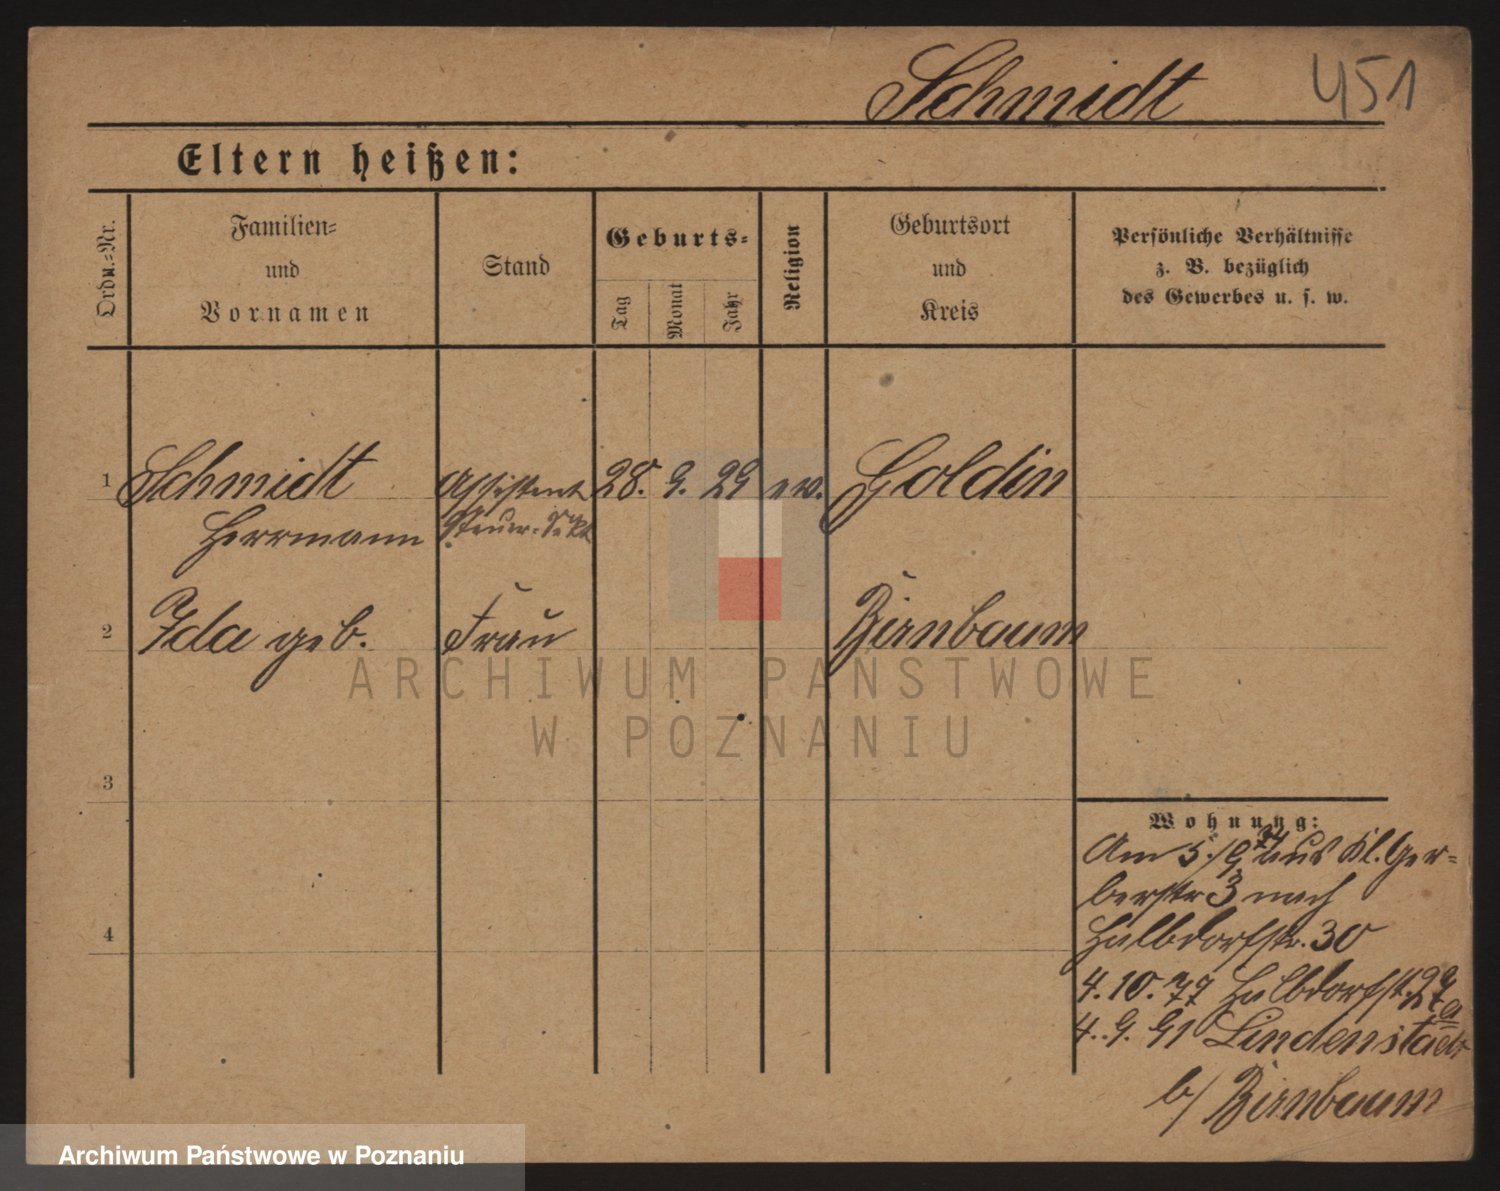 Schmidt 451
Eltern heißen:
Ordn.-Nr.
Familien-
und
Vornamen
Stand
Geburts-
Tag
Monat
Jahr
Religion
Geburtsort
und
Kreis
Persönliche Verhältnisse
z. B. bezüglich
des Gewerbes u. s. w.
1 Schmidt Assistent 28. 9. 29 ev. Soldin
Herrmann Steuer-Sekt
2 Ida geb. Frau Birnbaum
ARCHIWUM PAŃSTWOWE
W POZNANIU
3
Wohnung:
Am 5./9. aus Kl. Ger-
berstr 3 nach
4 Halbdorfstr. 30
4. 10. 77 Halbdorfstr.
4. 9. 91 Lindenstadt
b/ Birnbaum
Archiwum Państwowe w Poznaniu